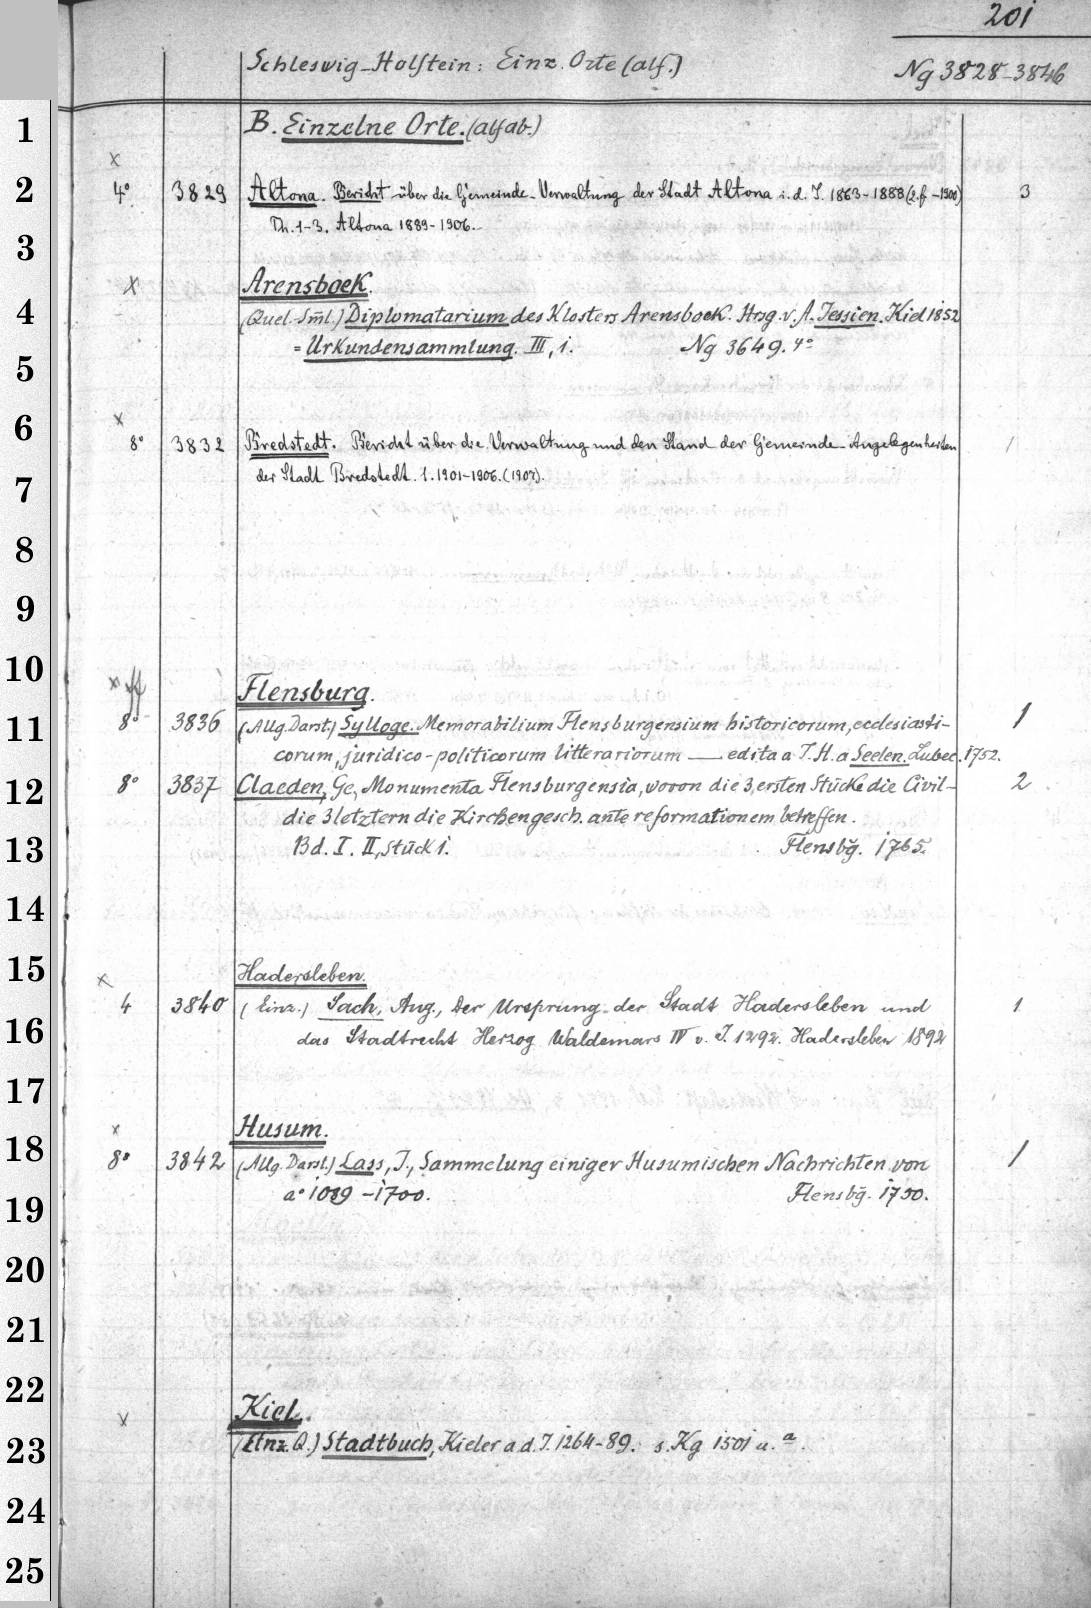 201
Schleswig-Holstein: Einz. Orte (alf.)
Ng 3828-3846
B. Einzelne Orte. (alfab.)
x
4° 3829 Altona. Bericht über die Gemeinde-Verwaltung der Stadt Altona i. d. J. 1863-1888 (2.f -1900) 3
Th. 1-3. Altona 1889-1906.
x Arensboek.
(Quel. Sm̄l.) Diplomatarium des Klosters Arensboek. Hrsg. v. A. Jessien. Kiel 1852
= Urkundensammlung. III, 1. Ng 3649. 4°
x
8° 3832 Bredstedt. Bericht über die Verwaltung und den Stand der Gemeinde-Angelegenheiten 1
der Stadt Bredstedt. 1. 1901-1906. (1907).
x ff Flensburg.
8° 3836 (Allg. Darst.) Sylloge. Memorabilium Flensburgensium historicorum, ecclesiasti- 1
corum, juridico-politicorum litterariorum — edita a J. H. a Seelen. Lubec. 1752.
8° 3837 Claeden, Ge, Monumenta Flensburgensia, wovon die 3 ersten Stücke die Civil- 2
die 3 letztern die Kirchengesch. ante reformationem betreffen.
Bd. I. II, Stück 1. Flensbg̃. 1765.
x Hadersleben.
4 3840 (Einz.) Sach, Aug., Der Ursprung der Stadt Hadersleben und 1
das Stadtrecht Herzog Waldemars IV v. J. 1292. Hadersleben 1892
x Husum.
8° 3842 (Allg. Darst.) Lass, J., Sammelung einiger Husumischen Nachrichten von 1
a° 1089 -1700. Flensbg̃. 1750.
x Kiel.
(Einz. Q.) Stadtbuch, Kieler a d. J. 1264-89. s. Kg 1501 u. a.
1
2
3
4
5
6
7
8
9
10
11
12
13
14
15
16
17
18
19
20
21
22
23
24
25